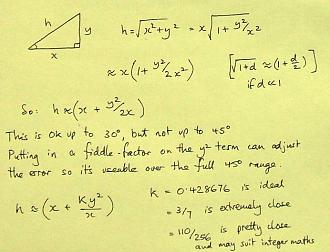 h
y
x
h = √x² + y² = x √1 + y²/x²
≈ x (1 + y²/2x²)
[√1+d ≈ (1 + d/2)]
if d≪1
So: h ≈ (x + y²/2x)
This is OK up to 30°, but not up to 45°
Putting in a fiddle-factor on the y² term can adjust
the error so its useable over the full 45° range:
h ≈ (x + Ky²/x)
K = 0·428676 is ideal
= 3/7 is extremely close
= 110/256 is pretty close
and may suit integer maths